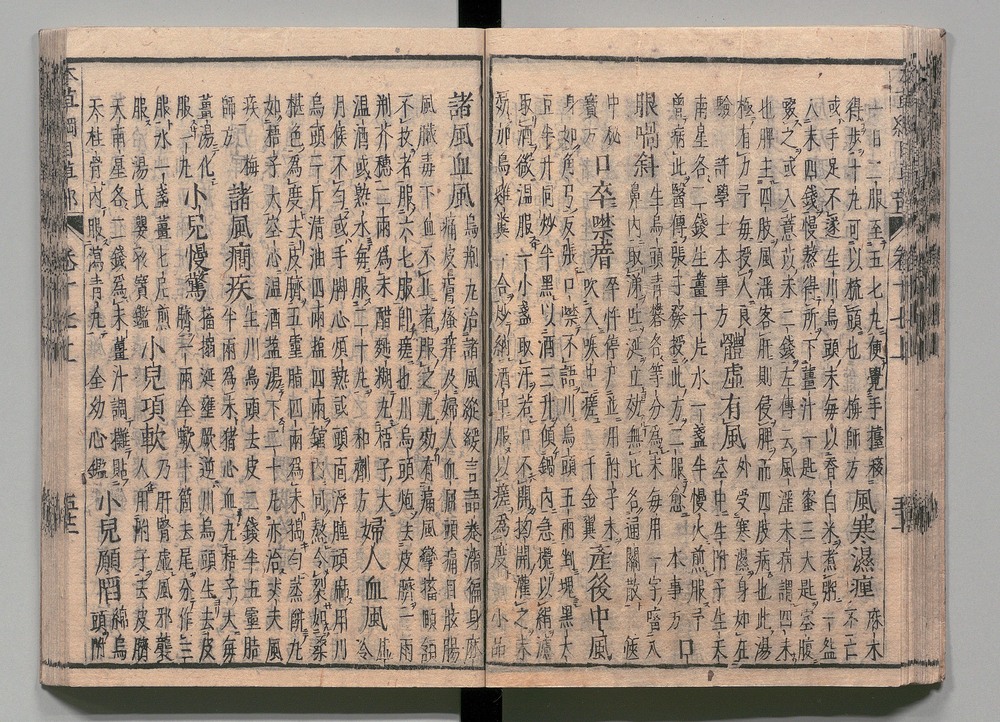 十日一服至五七九便覺手擡移
得步十九可以梳頭也梅師方 風寒濕痺 麻木不仁
或手足不遂生川烏頭末每以香白米煮粥一盌
入末四錢慢熬得所下薑汁一匙蜜三大匙空腹
啜之或入薏苡末二錢左傳云風淫末疾謂四末
也脾主四肢風淫客肝則侵脾而四肢病也此湯
極有力予每授人良驗許學士本事方 體虛有風 外受寒濕身如在空中生附子生天
南星各二錢生薑十片水一盞半慢火煎服予
曾病此醫傳張子發授此方二服愈 本事方 口
眼喎斜 生烏頭青礬各等分為末每用一字㗜入
鼻內取涕吐涎立效無比名通關散 篋
中秘寶方 口卒噤瘖 卒忤停尸並用附子末吹入喉中瘥 千金翼 產後中風
身如角弓反張口噤不語川烏頭五兩剉塊黑大
豆半升同炒半黑以酒三升傾鍋內急攪以絹濾
取酒微溫服一小盞取汗若口不開拗開灌之未
效加烏雞糞一合炒納酒中服以瘥為度 小品
諸風血風 烏荊丸治諸風縱緩言語蹇澀遍身麻
痛皮膚瘙痒及婦人血風頭痛目眩腸
風臟毒下血不止者服之尤效有痛風攣搐頤頷
不收者服六七服即瘥也川烏頭炮去皮臍一兩
荊芥穗二兩為末醋麪糊丸梧子大
溫酒或熟水每服二十丸和劑方 婦人血風 虛冷
月候不勻或手腳心煩熱或頭面浮腫頑麻用川
烏頭一斤清油四兩鹽四兩鐺內同熬令裂如桑
椹色為度去皮臍五靈脂四兩為末搗勻蒸餅丸
如梧子大空心溫酒鹽湯下二十丸亦治丈夫風
疾 梅師方 諸風癇疾 生川烏頭去皮二錢半五靈脂
半兩為末猪心血丸梧子大每
薑湯化服一丸 小兒慢驚 搐搦涎壅厥逆川烏頭生去皮
臍一兩全蠍十箇去尾分作三
服水一盞薑七片煎服湯氏嬰孩寶鑑 小兒項軟 乃肝腎虛風邪襲
入用附子去皮臍
天南星各二錢為末薑汁調攤貼
天柱骨內服瀉青丸 全幼心鑑 小兒顖陷 綿烏
頭附